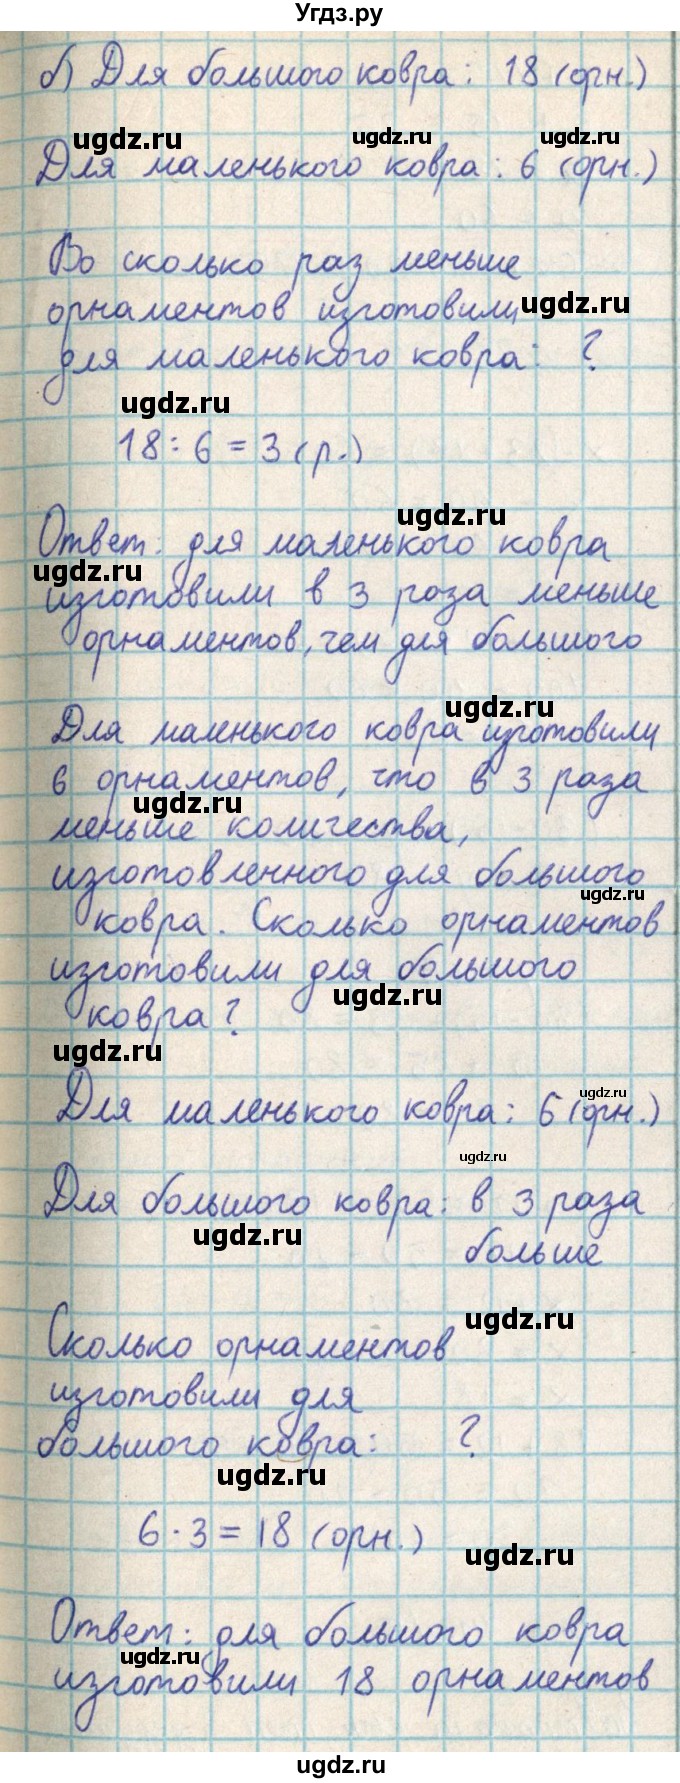 Угдз.ру
б) Для большого ковра: 18 (орн.)
ugdz.ru ugdz.ru ugdz.ru
Для маленького ковра: 6 (орн.)
Во сколько раз меньше
орнаментов изготовили
ugdz.ru
для маленького ковра: ?
ugdz.ru
18 : 6 = 3 (р.)
ugdz.ru
Ответ: для маленького ковра
ugdz.ru
изготовили в 3 раза меньше
орнаментов, чем для большого
ugdz.ru
Для маленького ковра изготовили
6 орнаментов, что в 3 раза
ugdz.ru
меньше количества,
изготовленного для большого
ugdz.ru
ковра. Сколько орнаментов
изготовили для большого
ugdz.ru
ковра?
ugdz.ru
ugdz.ru
Для маленького ковра: 6 (орн.)
ugdz.ru
Для большого ковра: в 3 раза
ugdz.ru
больше
ugdz.ru
Сколько орнаментов
изготовили для
большого ковра: ?
ugdz.ru
6 · 3 = 18 (орн.)
ugdz.ru
Ответ: для большого ковра
ugdz.ru
изготовили 18 орнаментов
ugdz.ru